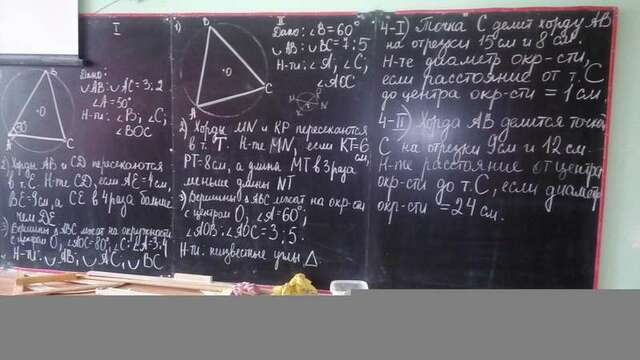 I
B
O
50°
A
C
Дано:
∪AB:∪AC=3:2
∠A=50°
Н-ти: ∠B; ∠C;
∠BOC
2) Хорды AB и CD пересекаются
в т.E. Н-те CD, если AE=4см,
BE=9см, а CE в 4 раза больше
чем DE
3) Вершины △ABC лежат на окружности
с центром O, ∠AOC=80°, ∠C:∠A=3:4
Н-ти: ∪AB; ∪AC; ∪BC
II
1)
B
O
A
C
Дано: ∠B=60°
∪AB:∪BC=7:5
Н-ти: ∠A, ∠C,
∠AOC
2) Хорды MN и KP пересекаются
в т. T. Н-те MN, если KT=6см,
PT=8см, а длина MT в 3 раза
меньше длины NT
3) Вершины △ABC лежат на окр-сти
с центром O, ∠A=60°,
∠AOB:∠AOC=3:5.
Н-ти: неизвестные углы △.
4-I) Точка C делит хорду AB
на отрезки 15см и 8см.
Н-те диаметр окр-сти,
если расстояние от т.C
до центра окр-сти = 1см.
4-II) Хорда AB делится точкой
C на отрезки 9см и 12см.
Н-те расстояние от центра
окр-сти до т.C, если диаметр
окр-сти = 24см.